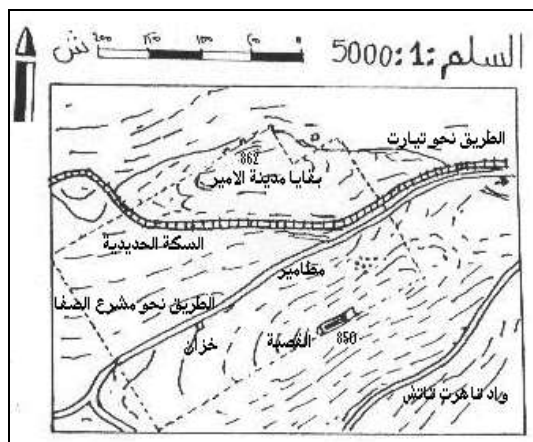 السلم :1:5000
ش
200 150 100 50 0
الطريق نحو تيارت
862
بقايا مدينة الامير
السكة الحديدية
مطامير
الطريق نحو مشرع الصفا
خزان
القصبة
850
واد تاهرت تاتش